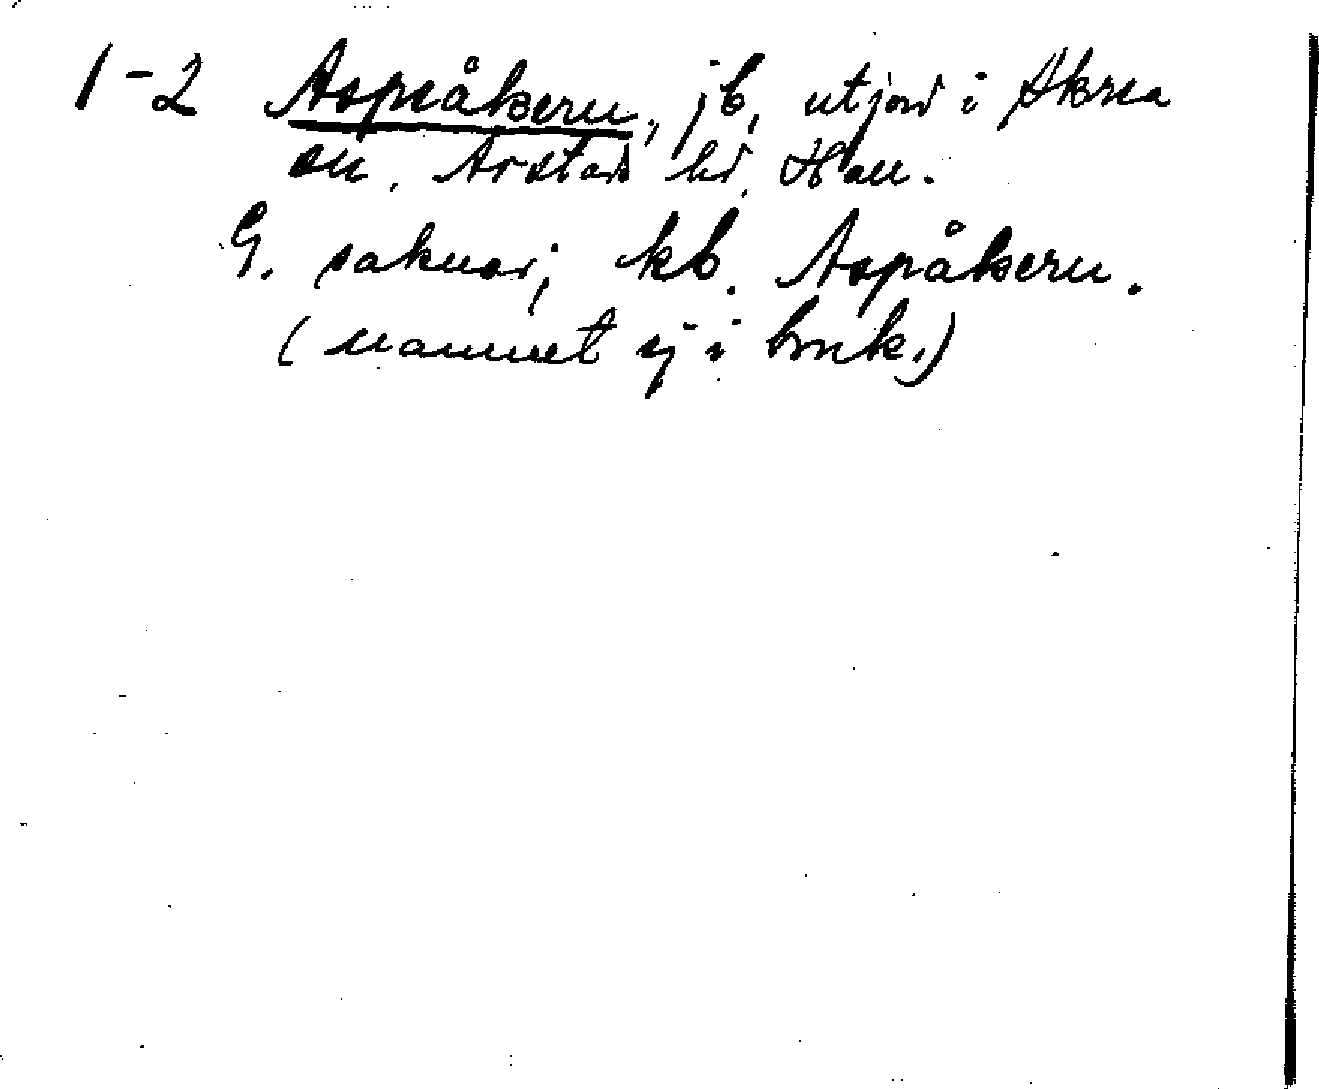 1-2 Aspeåkern, jb, utjord i Skrea
sn. Årstads hd. Hall.
G. saknas; kb. Aspåkern.
(namnet ej i bruk.)